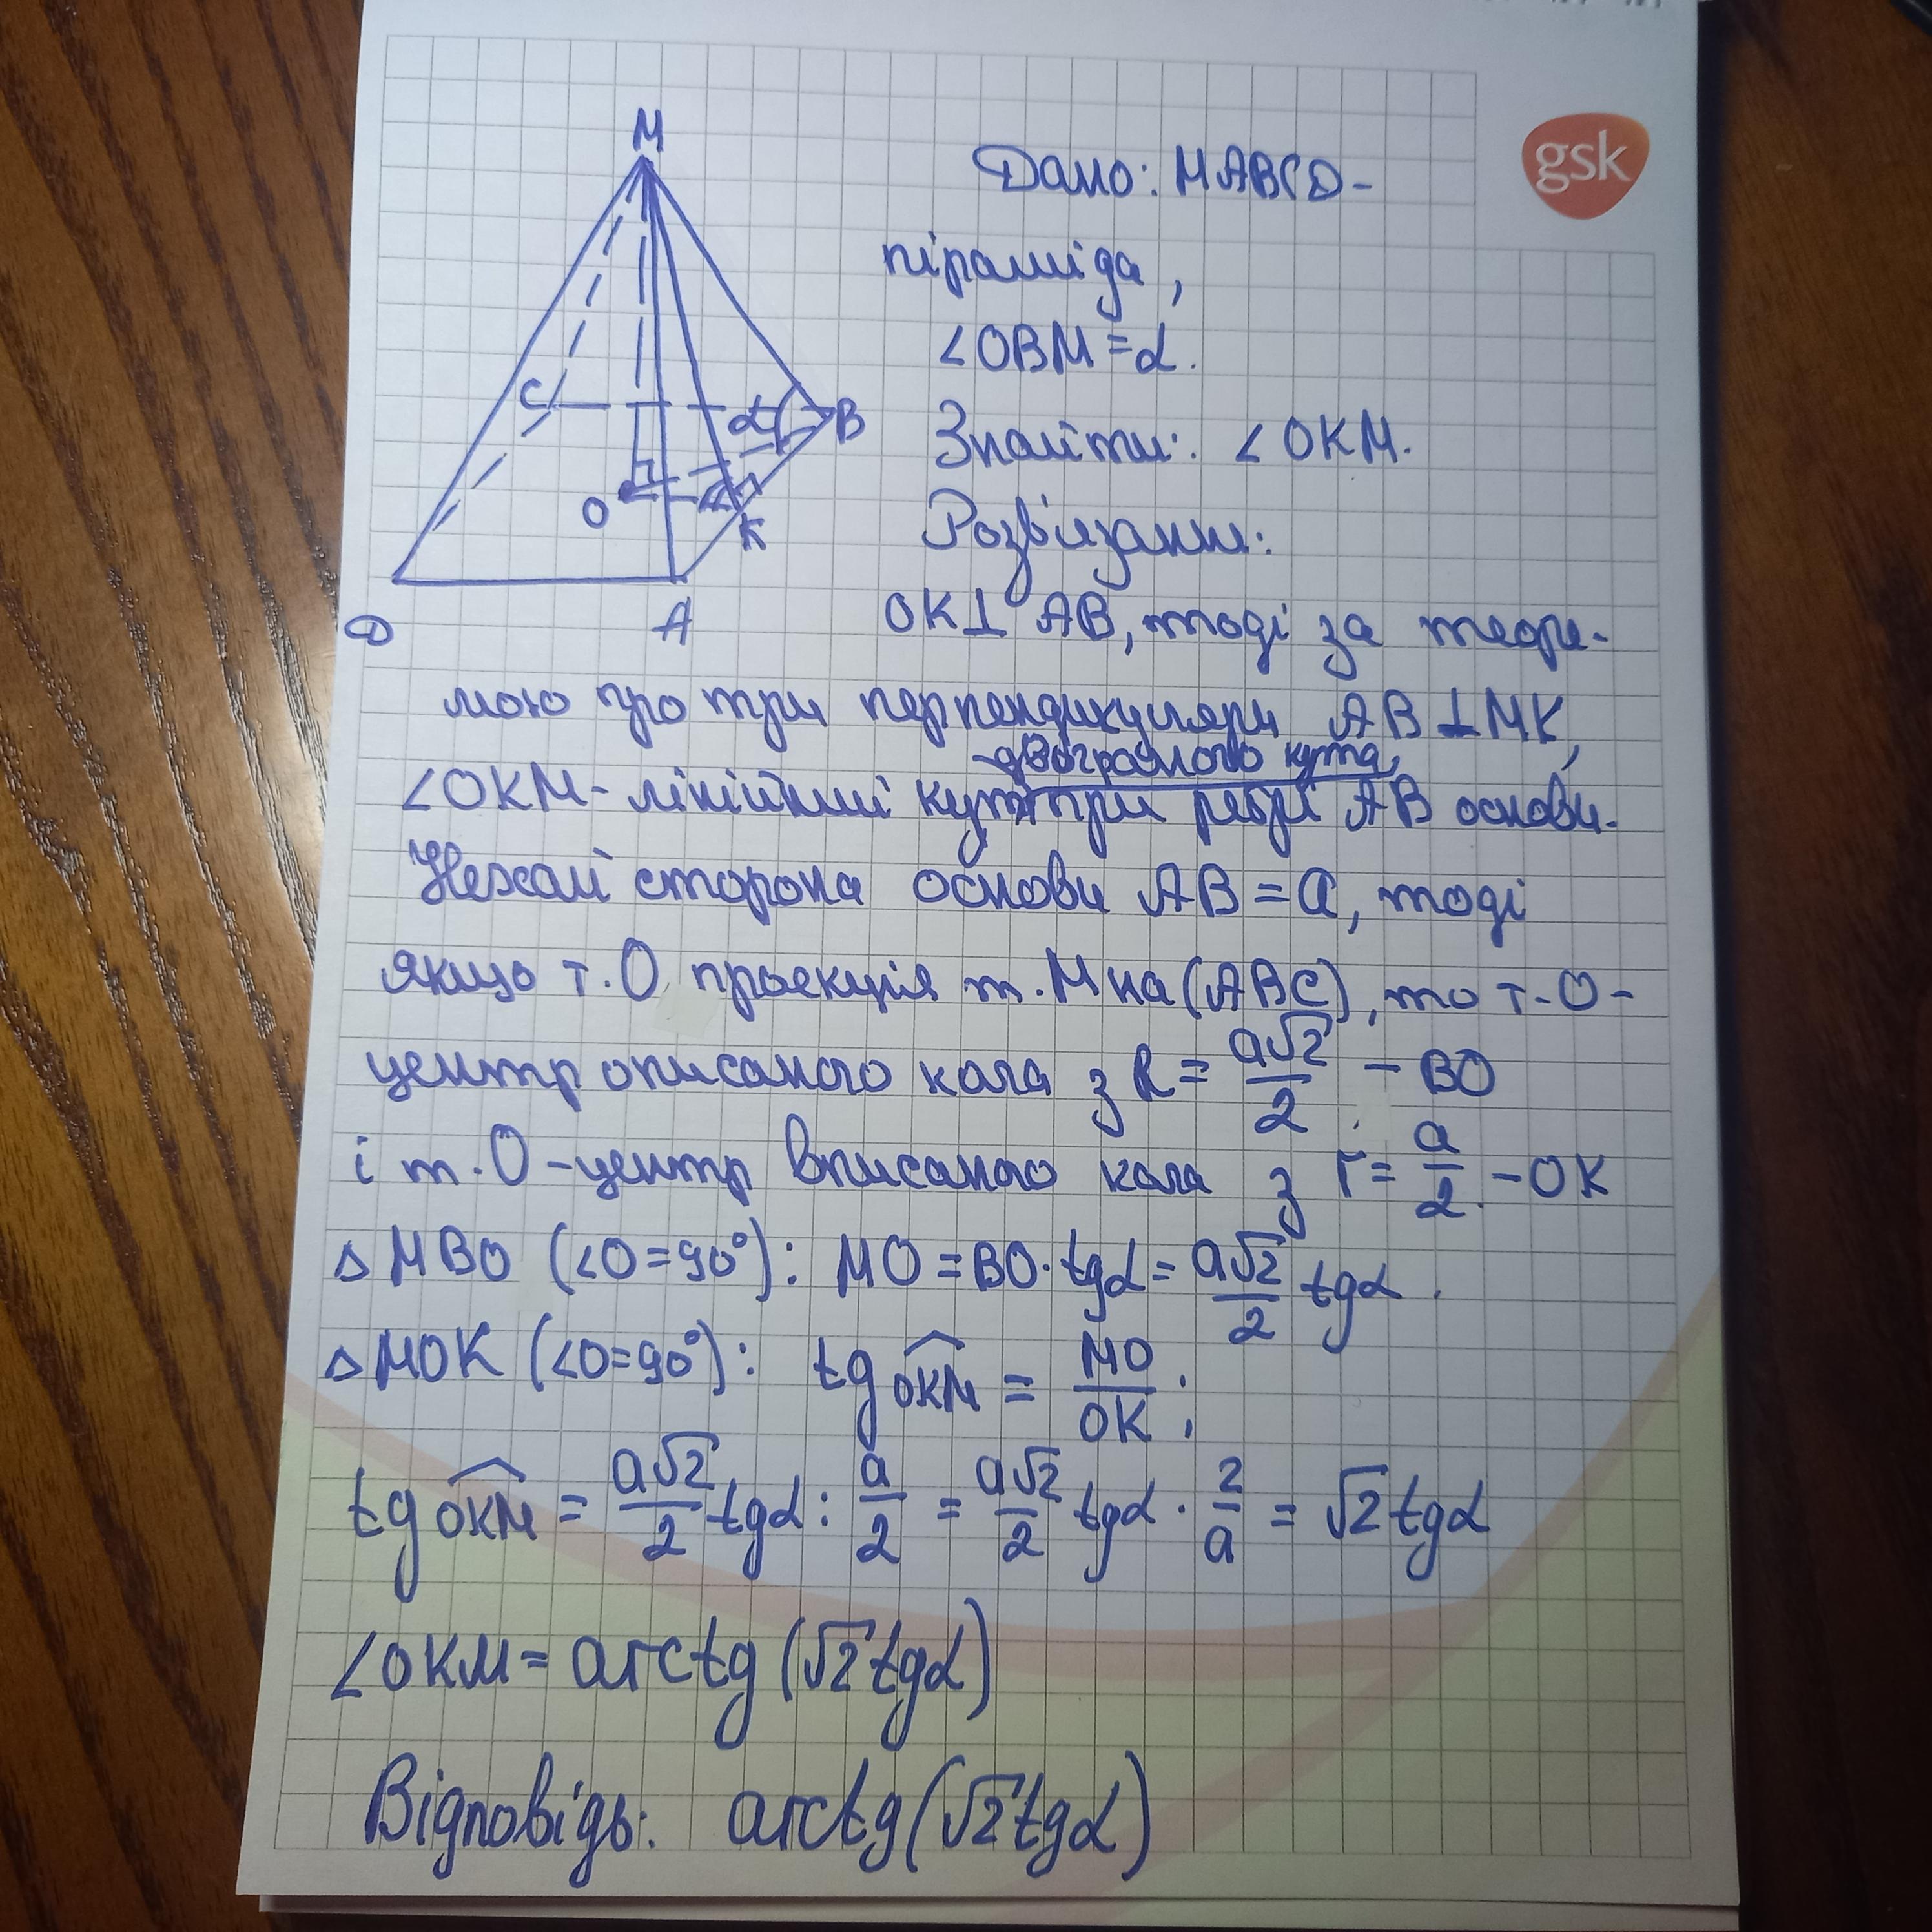 M
gsk
Дано: MABCD-
піраміда,
∠OBM=α.
C
α
B
Знайти: ∠OKM.
O
K
Розв'язання:
D
A
OK⊥AB, тоді за теоре-
мою про три перпендикуляри AB⊥MK,
двогранного кута,
∠OKM- лінійний кут при ребрі AB основи.
Нехай сторона основи AB=a, тоді
якщо т.O проекція т.M на (ABC), то т.O-
центр описаного кола з R= a√2/2 - BO
і т.O-центр вписаного кола з r= a/2 - OK
△MBO (∠O=90°): MO=BO·tgα= a√2/2 tgα.
△MOK (∠O=90°): tg OKM = MO/OK;
tg OKM = a√2/2 tgα : a/2 = a√2/2 tgα · 2/a = √2tgα
∠OKM= arctg (√2tgα)
Відповідь: arctg(√2tgα)